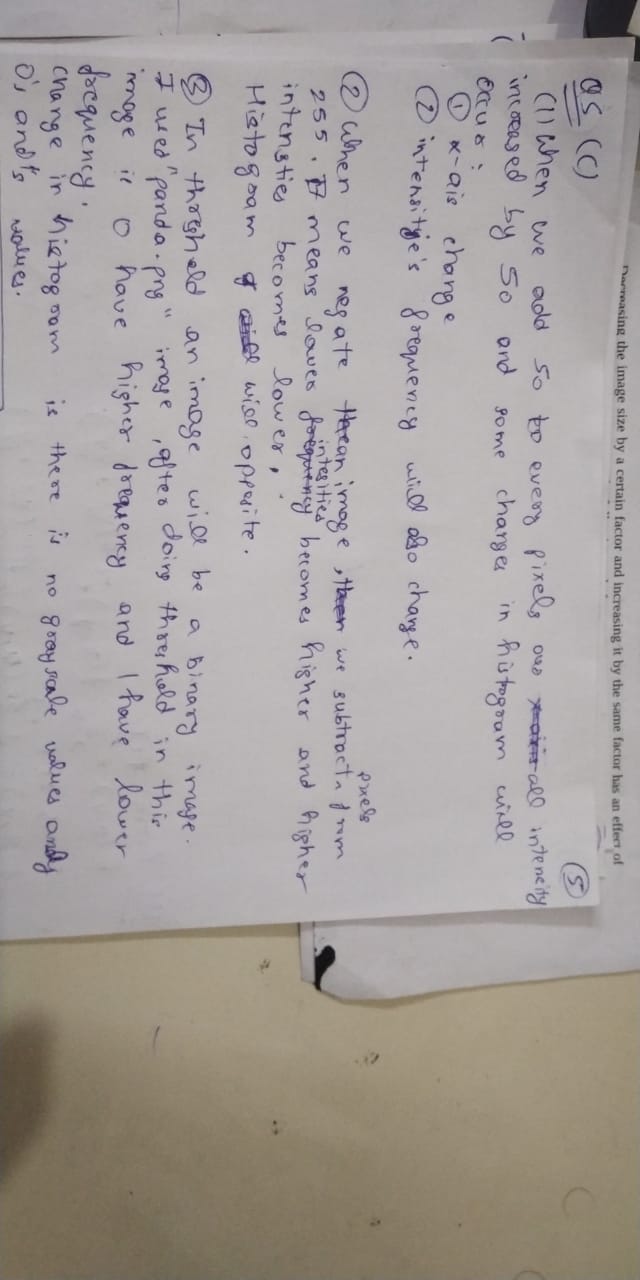 Decreasing the image size by a certain factor and increasing it by the same factor has an effect of
5
Q5 (C)
(1) When we add 50 to every pixels our all intencity
increased by 50 and some changes in histogram will
occur :
① x-ais change
② intensitye's frequency will also change.
② When we negate an image, we subtract pixels from
255. It means lower intesities becomes higher and higher
intensties becomes lower,
Histogram will opposite.
③ In threshold an image will be a binary image.
I used "panda.png" image, after doing threshold in this
image is 0 have higher frequency and 1 have lower
frequency,
change in histogram is there is no grayscale values only
0's and 1's values.